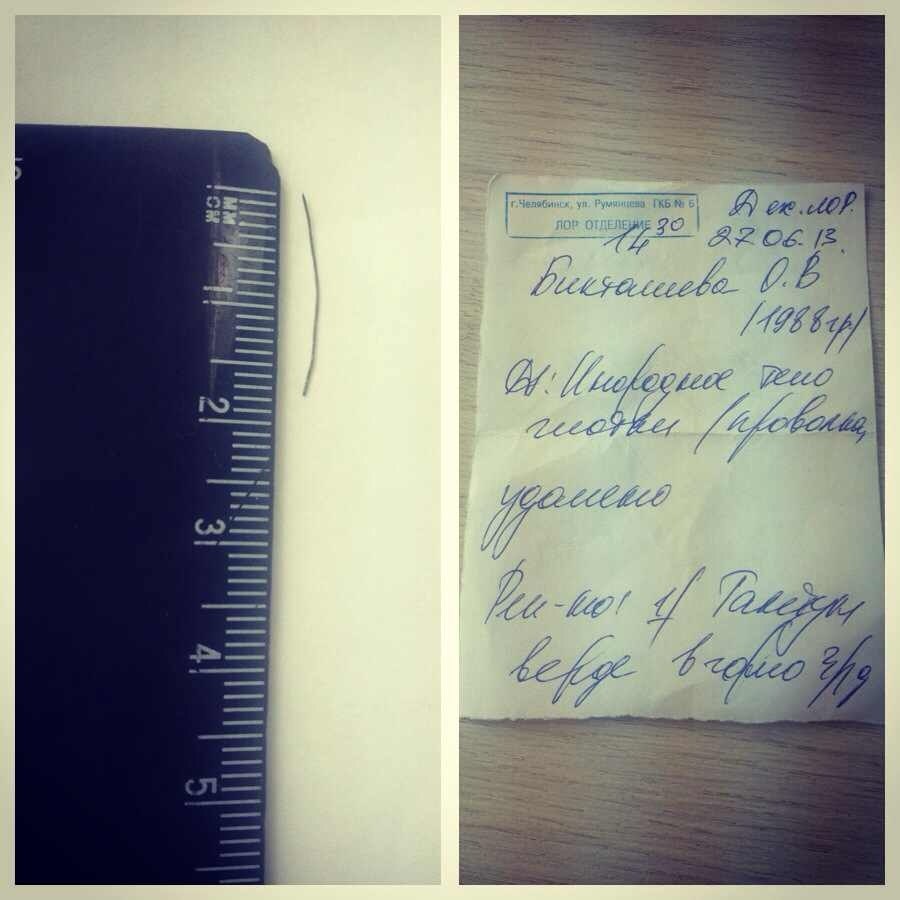 мм
см
1
2
3
4
5
г.Челябинск, ул. Румянцева ГКБ № 6
ЛОР ОТДЕЛЕНИЕ
14 30
Д еж. ЛОР.
27 06. 13.
Бикташева О.В
/1988 гр/
Ds: Инородное тело
глотки (проволка,
удалено
Рек-но: 1/ Тантум
верде в горло 3 р/д